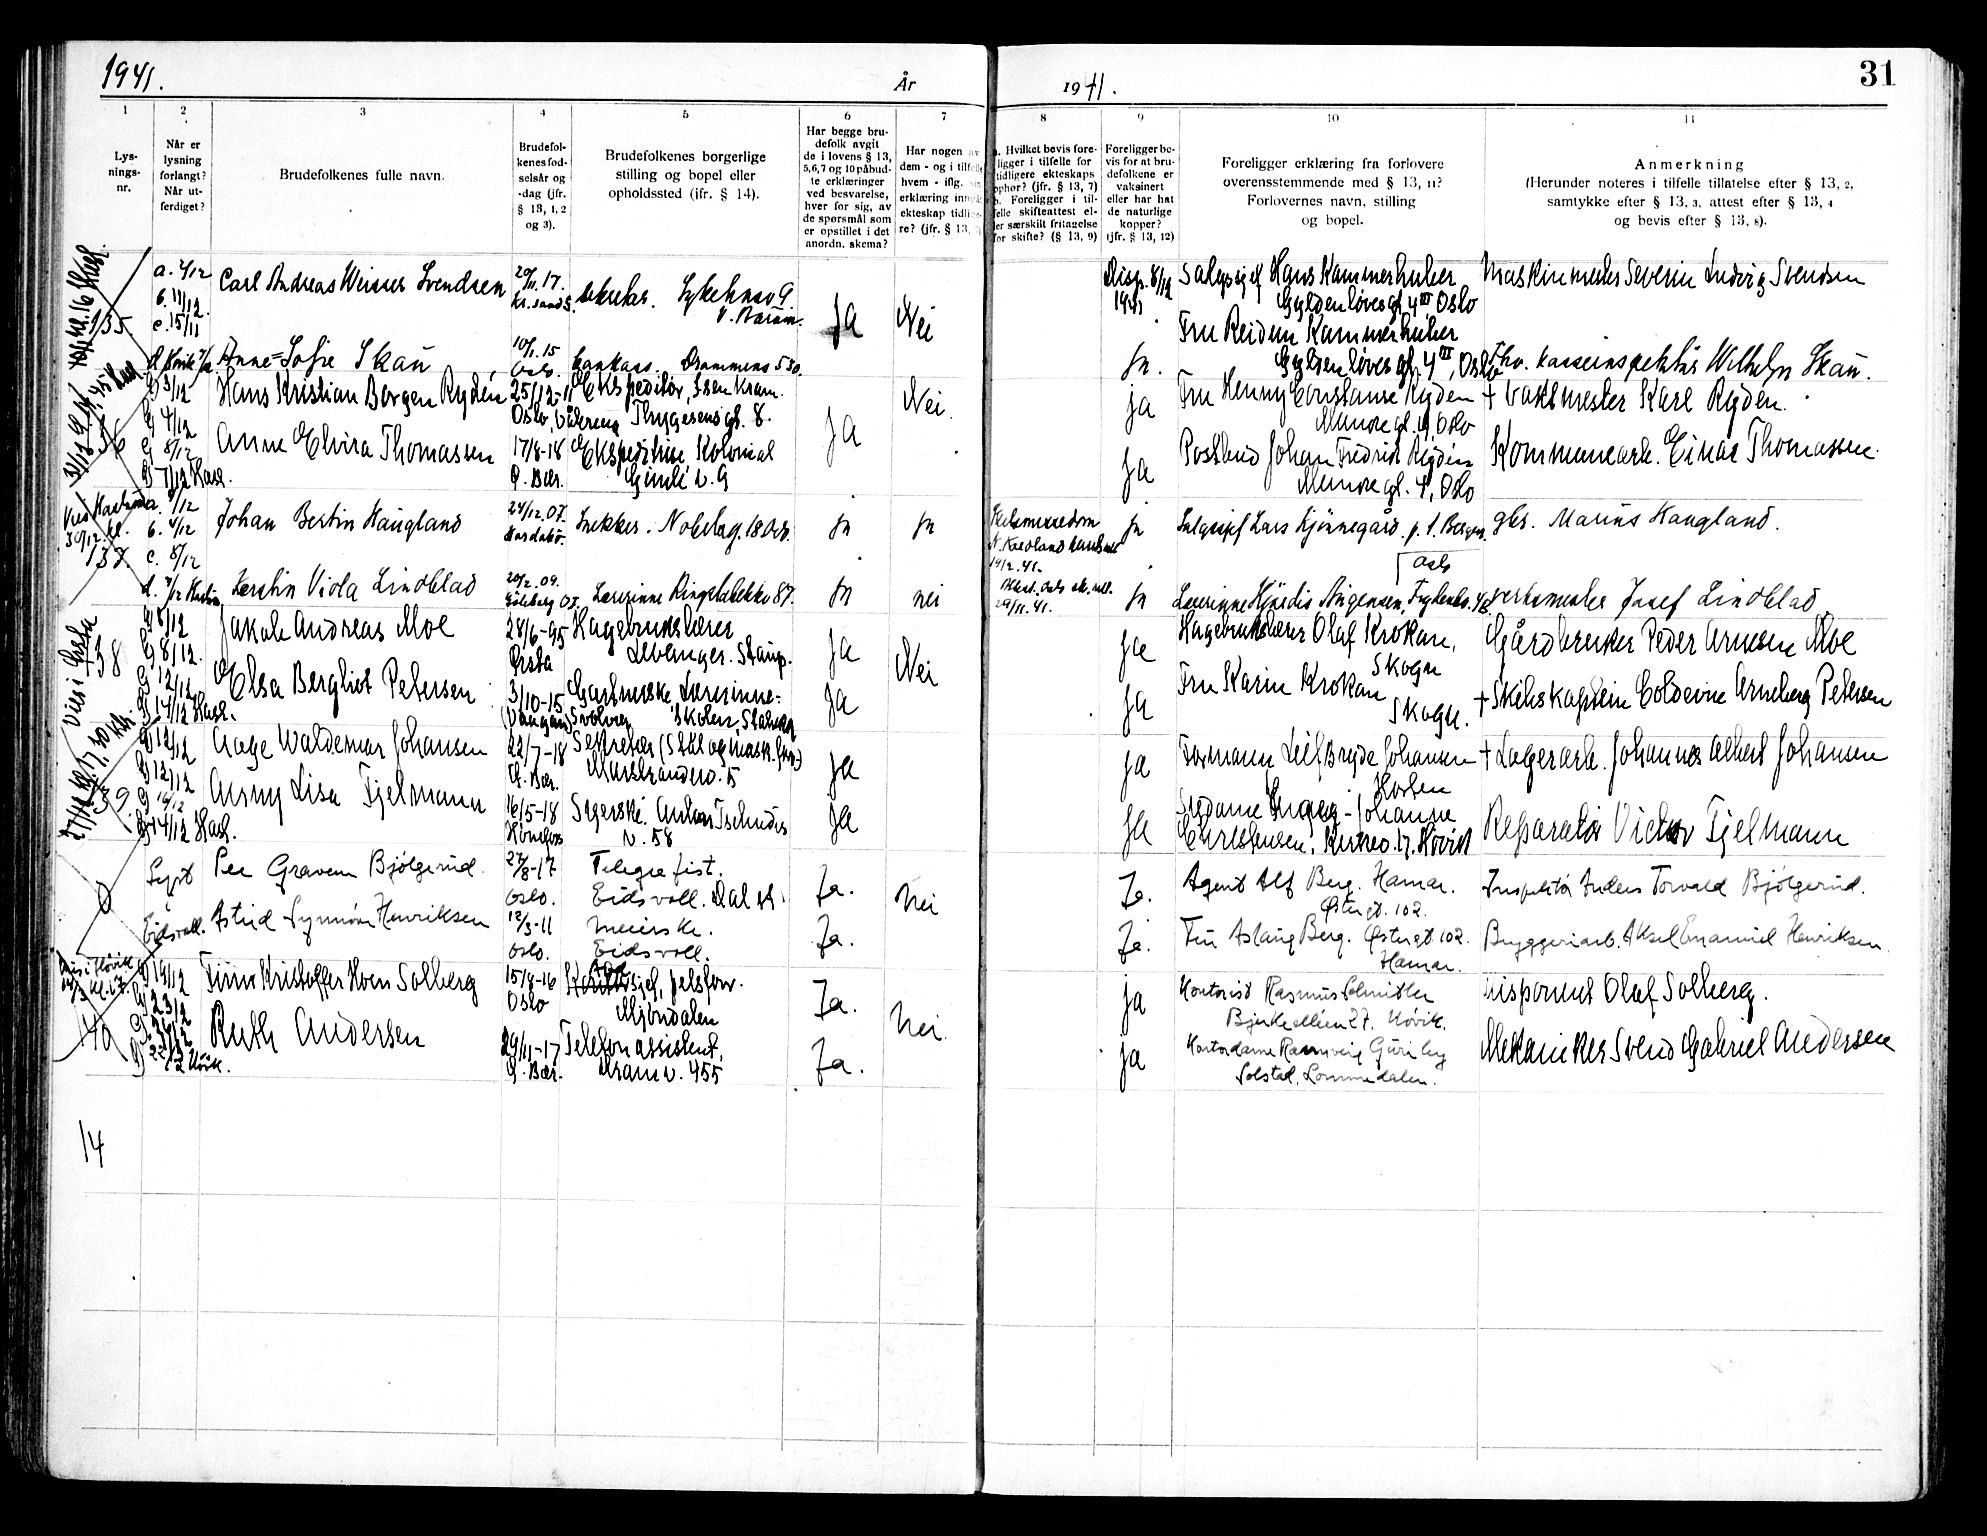 1941.
År
1941.
31
1
Lys-
nings-
nr.
2
Når er
lysning
forlangt?
Når ut-
ferdiget?
3
Brudefolkenes fulle navn.
4
Brudefol-
kenes fød-
selsår og
-dag (jfr.
§ 13, 1, 2
og 3).
5
Brudefolkenes borgerlige
stilling og bopel eller
opholdssted (ifr. § 14).
6
Har begge bru-
defolk avgit
de i lovens § 13,
5,6,7 og 10 påbud-
te erklæringer
ved besvarelse,
hver for sig, av
de spørsmål som
er opstillet i det
anordn. skema?
7
Har nogen av
dem - og i tilfelle
hvem - iflg.
erklæring inng
ekteskap tidlige-
re? (jfr. § 13,
8
a. Hvilket bevis fore-
ligger i tilfelle for
tidligere ekteskaps
ophør? (jfr. § 13, 7)
b. Foreligger i til-
felle skifteattest el-
ler særskilt fritagelse
for skifte? (§ 13, 9)
9
Foreligger be-
vis for at bru-
defolkene er
vaksinert
eller har hat
de naturlige
kopper?
(jfr. § 13, 12)
10
Foreligger erklæring fra forlovere
overensstemmende med § 13, 11?
Forlovernes navn, stilling
og bopel.
11
Anmerkning
(Herunder noteres i tilfelle tillatelse efter § 13, 2,
samtykke efter § 13, 3, attest efter § 13, 4
og bevis efter § 13, 8).
135
a. 2/12
b. 11/12
c. 15/11
Carl Andreas Weisser Svendsen
20/11.17.
Kr.sand S.
Ja
Nei
Disp. 8/12
1941
Salgssjef Hans Kammerhuber
Gyldenløvesgt. 4 III, Oslo
Maskinmester Severin Ludvig Svendsen
Anne-Sofie Skau
10/1.15
Oslo.
Bankass. Drammensv. 530.
ja.
Fru Reidun Kammerhuber
Gyldenløvesgt. 4 III, Oslo
Fhv. kasseinspektør Wilhelm Skau.
3/12
4/12
8/12
7/12 Hasl.
Hans Kristian Borgen Rydén
25/12-11
Oslo, Vålereng
Ekspeditør, Isen kram.
Thygesens gt. 8.
Ja
Nei.
ja
Fru Henny Constanse Rydén
Munkegt. 4, Oslo
+ Vaktmester Karl Rydén.
Anne Elvira Thomassen
17/8-18
Ø. Bær.
Ekspeditrise Kolonial
Gimle v. 9
ja
Postbud Johan Fredrik Rydén
Munkegt. 4, Oslo
Kommunearb. Einar Thomassen.
137
b. 4/12
c. 8/12
Johan Bertin Haugland
24/12.07.
Snekker. Nobelsg. 18 Oslo.
ja
ja
14/2.41.
29/11.41.
ja
Salgssjef Lars Kjønnegård, p. t. Bergen
gbr. Marius Haugland.
Kerstin Viola Lindblad
20/2.09.
Göteborg
Lærerinne Ringstabekkv. 87.
ja
nei
ja
Oslo
verksmester Josef Lindblad
Vies i Ørsta
138
8/12
8/12.
12/12
14/12 Hasl.
Jakob Andreas Moe
28/6-95
Ørsta
Hagebrukslærer
Levanger. Staup.
Ja
Nei
ja
Hagebrukslærer Olaf Krokan,
Skogn
Gårdbruker Peder Arnesen Moe
Elsa Bergliot Petersen
3/10-15
(Vaagan) Svolvær
Gartnerske Lærerinne-
skolen, Stabekk
Ja
ja
Fru Karin Krokan
Skogn.
+ Skibskaptein Coldevine Arneberg Petersen
139
12/12
12/12
16/12
14/12 Hasl.
Aage Waldemar Johansen
22/7-18
Ø. Bær.
Sekretær (Stål og mask. for.)
Markstrandsv. 5
ja
ja
Formann Leif Bryde Johansen
Horten
+ Lagerarb. Johannes Albert Johansen
Anny Lisa Fjelmann
16/5-18
Hønefoss
Sygerske. Anton Tschudis
v. 58
ja
ja
Reparatør Victor Fjelmann
0
Eidsvoll.
Per Gravem Bjølgerud.
27/8-17
Oslo.
Telegrafist.
Eidsvoll. Dal st.
Ja.
Nei
Ja.
Agent Alf Berg. Hamar.
Østergt. 102.
Inspektør Anders Torvald Bjølgerud.
Astrid Synnøve Henriksen
12/3-11
Oslo.
meierske.
Eidsvoll.
Ja.
Ja.
Fru Aslaug Berg. Østergt. 102.
Hamar.
Bryggeriarb. Aksel Emanuel Henriksen.
140
19/12
23/12
22/12 Høvik.
Finn Kristoffer Hoen Solberg
15/8-16
Oslo
sjef, pelsforr.
Mjøndalen
Ja.
Nei.
ja
Kontorist Rasmus Schnitler
Bjerkealléen 27. Høvik.
Disponent Olaf Solberg.
Ruth Andersen
29/11-17
Ø. Bær.
Telefonassistent,
Dramv. 455
Ja.
ja
Kontordame Rannveig Guri
Solstad, Lommedalen.
Mekaniker Svend Gabriel Andersen
14